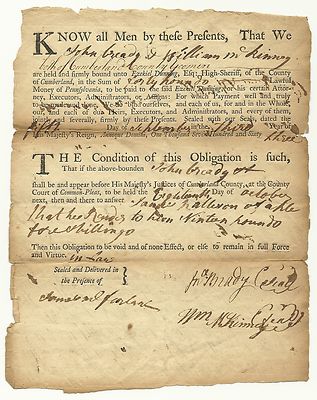 KNOW all Men by these Presents, That We
John Bready & William McKinney
both of Cumberland County Yeomen
are held and firmly bound unto Ezekiel Dunning, Esq; High-Sheriff, of the County
of Cumberland, in the Sum of forty pounds Lawful
Money of Pennsylvania, to be paid to the said Ezekiel Dunning, or his certain Attor-
ney, Executors, Administrators, or Assigns: For which Payment well and truly
to be done, we bind ourselves, and each of us, for and in the Whole,
our, and each of our Heirs, Executors, and Administrators, and every of them,
jointly and severally, firmly by these Presents. Sealed with our Seals, dated the
Day of September the Third
Majesty's Reign, Annoque Domini, One Thousand Seven Hundred and Sixty three
THE Condition of this Obligation is such,
That if the above-bounden John Bready
shall be and appear before His Majesty's Justices of Cumberland County, at the County
Court of Common-Pleas, to be held the Eighteenth Day of October
next, then and there to answer Ralston of a plea
that he to him pounds
Shillings
Then this Obligation to be void and of none Effect, or else to remain in full Force
and Virtue. in Law
Sealed and Delivered in
the Presence of
Jno Bready (Seal)
Wm McKinney (Seal)